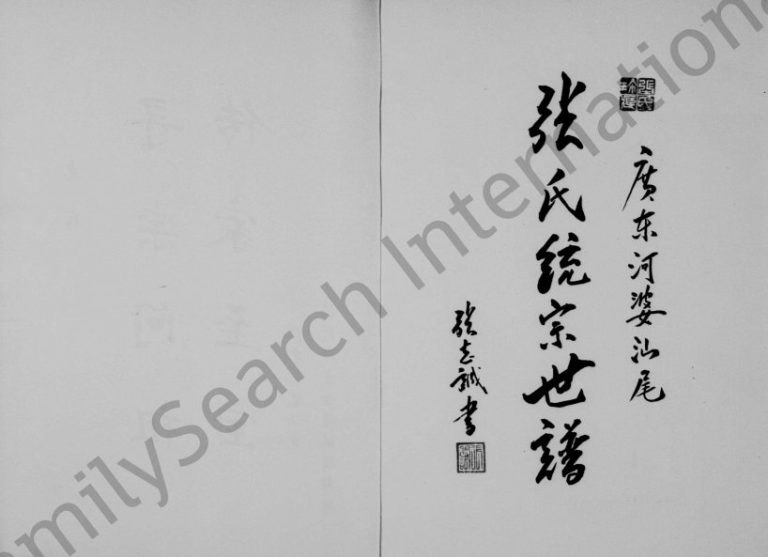 廣东河婆汕尾
张氏統宗世譜
张志誠书
FamilySearch International